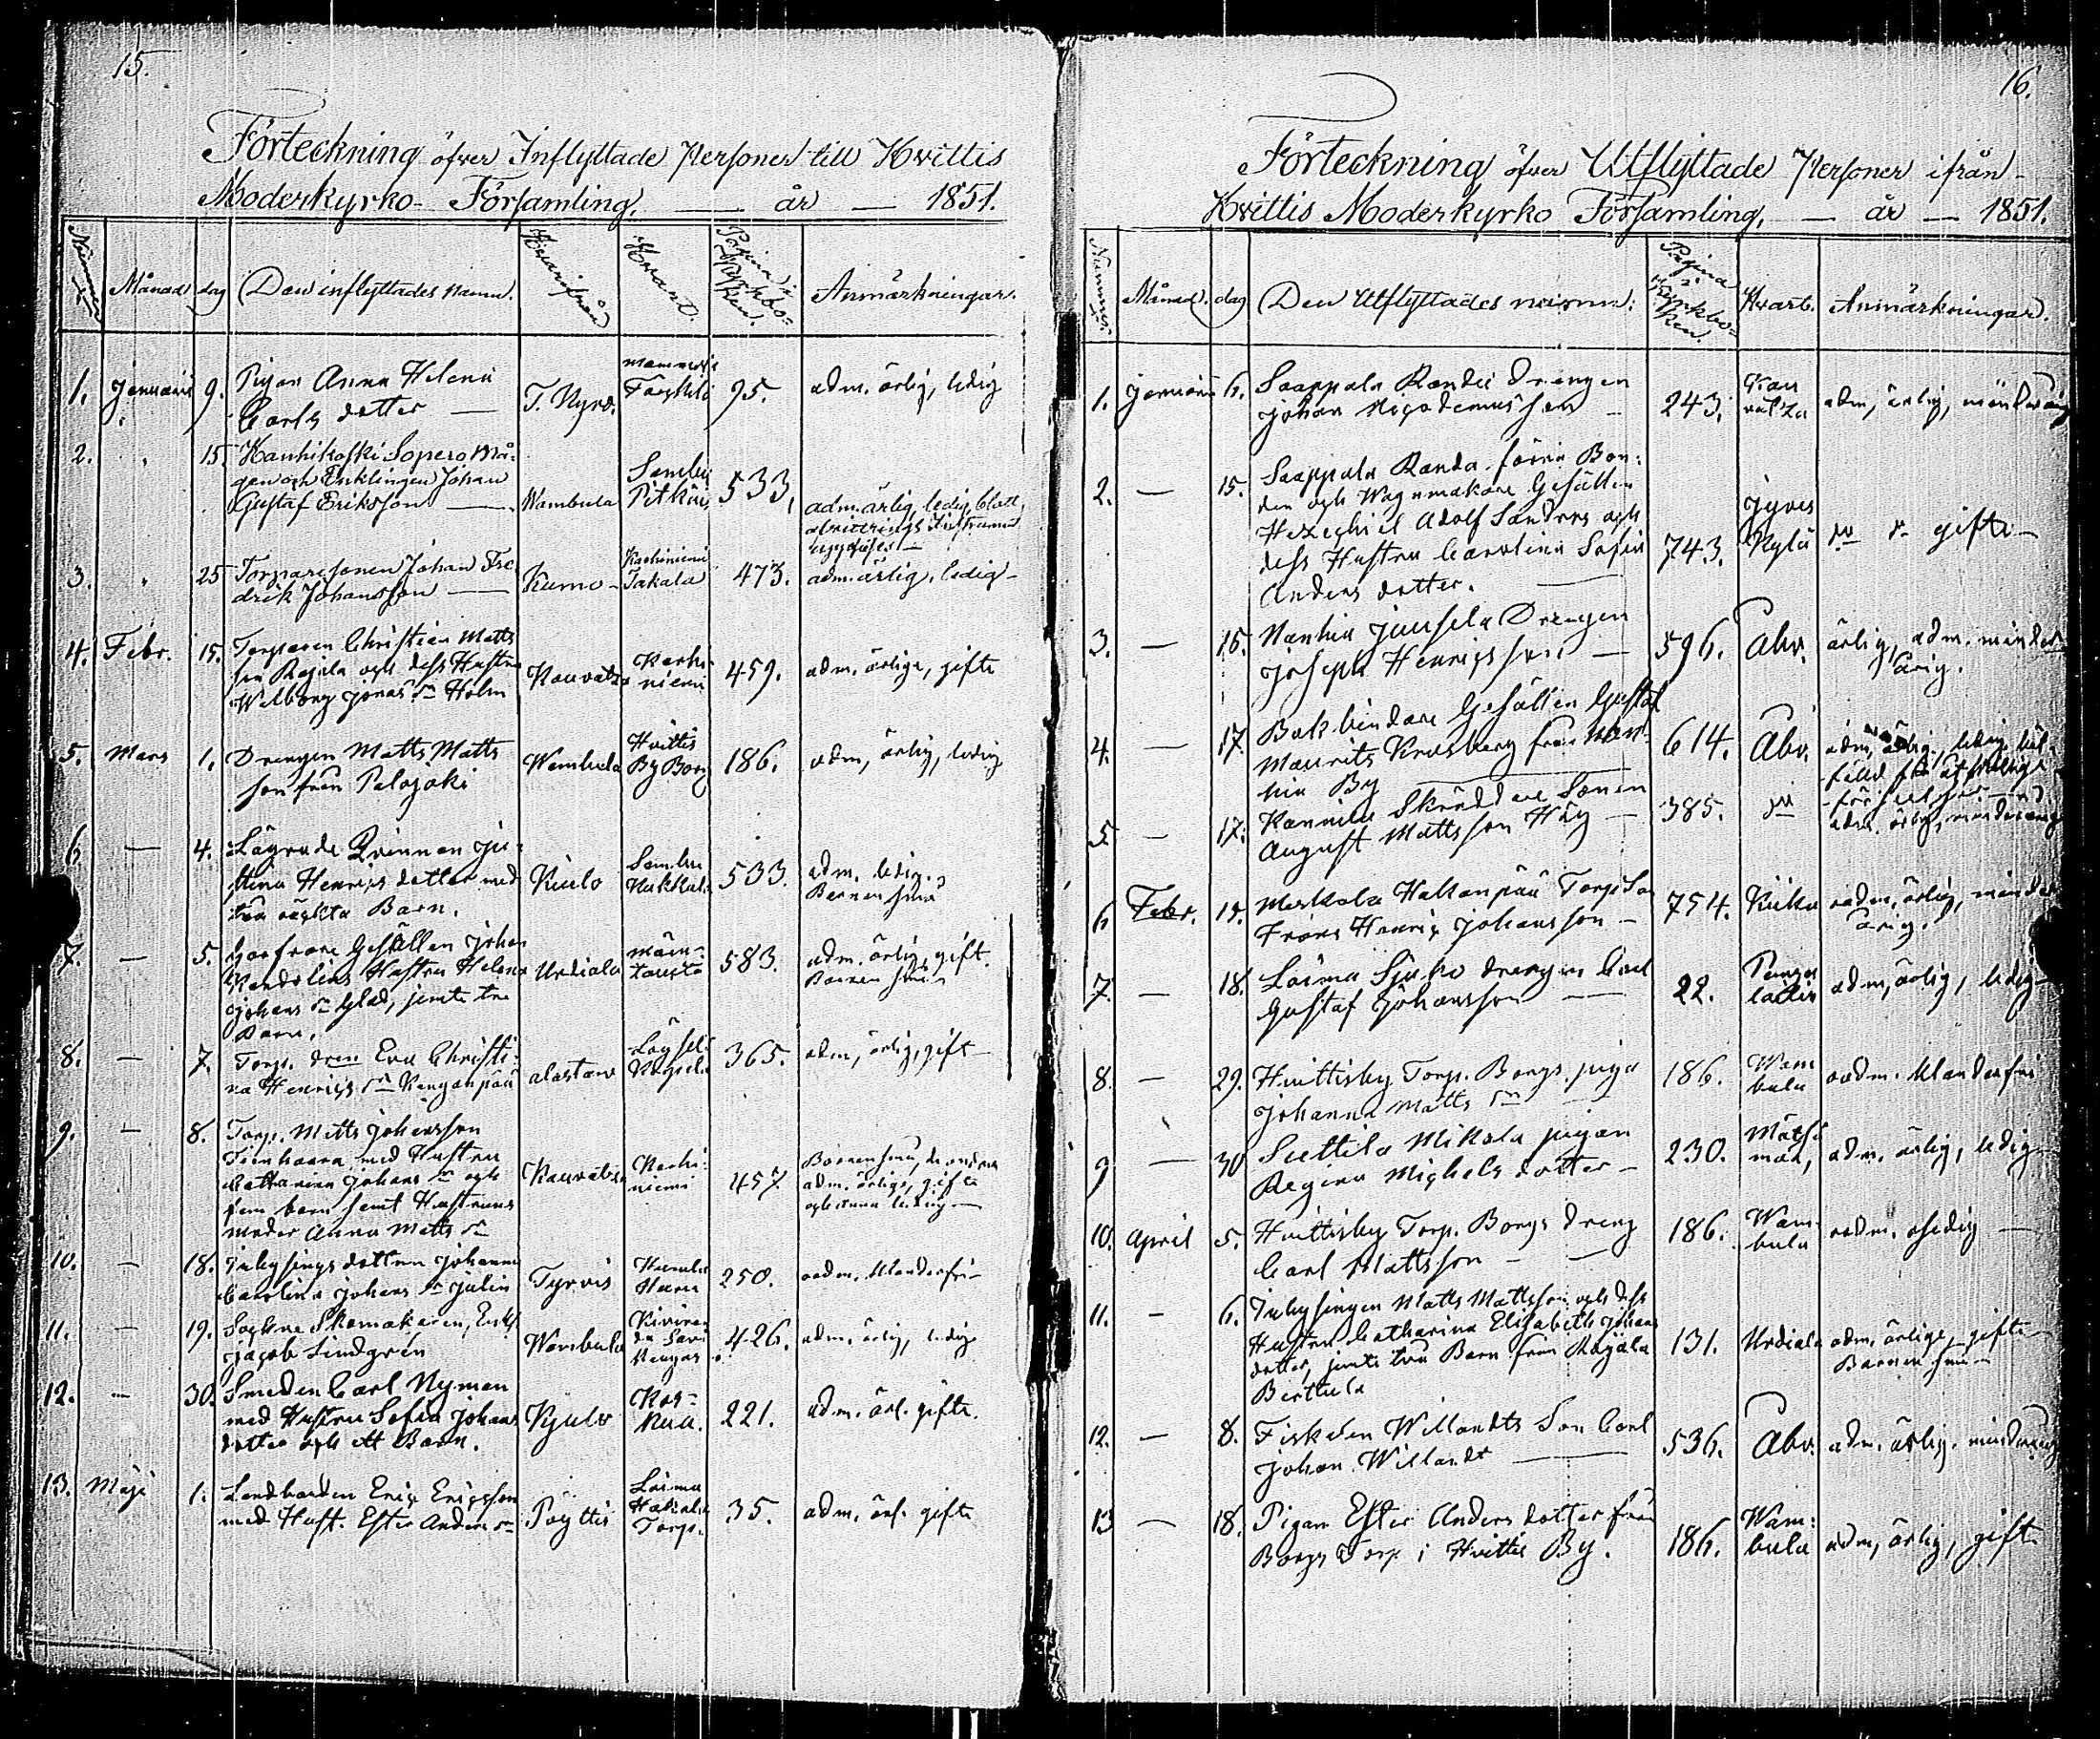 15.
Förteckning öfver Inflyttade Personer till Hvittis
Moderkyrko- Församling. — år — 1851.
Nummer Månad dag Den inflyttades namn. Hvarifrån Hvart. Pagina i Kyrkboken. Anmärkningar.
1. Januarii 9. Pigan Anna Helena
Carls dotter — T. Nyro. 95. adm. ärlig, ledig
2. " 15. Hanhikoski Sopero Må-
gen och Enklingen Johan
Gustaf Eriksson — Wambula Pitkäs 533. adm. ärlig, ledig,
3. " 25 Torparesonen Johan Fre
drik Johansson — Kumo - Karhiniemi Takala 473. adm. ärlig, ledig -
4. Febr. 15. Torparen Christian Matts
son Rajala och dess Hustru
Wilborg Jonas dr Holm Kauvatsa Karhi-
niemi 459. adm. ärlige, gifte
5. Mars 1. Drengen Matts Matts
son från Palojoki Wambula Hvittis
By Borg 186. adm, ärlig, ledig
6. — 4. Lägrade Qvinnan Ju-
stina Henrics dotter med
två oäkta Barn. Kiulo Sambu 533. adm. ledig.,
Barnen små
7. — 5. Garfvare Gesällen Johan
Hustru Helena
Johans dr Glad, jemte tre
Barn. Urdiala 583. adm. ärlig, gift.
Barnen små
8. — 7. Torp. dren Eva Christi-
na Henrics dr Kanganpää alastaro 365. adm, ärlig, gift
9. — 8. Torp. Matts Johansson
med Hustru
Catharina Johans dr och
fem barn samt Hustruns
moder Anna Matts dr Kauvatsa Karhi-
niemi 457 Barnen små, de andra
adm. ärlige, gifte
och enka ledig —
10. — 18. Inhysings dottren Johanna
Carolina Johans dr Julin Tyrvis 250. adm. klanderfri -
11. — 19. Sockne Skomakaren, Enkl.
Jacob Lindgrén Wambula 426. adm. ärlig, ledig
12. — 30. Smeden Carl Nyman
med Hustru Sofia Johans
dotter och ett Barn. Kjulo Kos-
kua. 221. adm. ärl. gifte.
13. Maji 1. Landbonden Eric Ericsson
med Hust. Ester Anders dr Pöyttis Loima
Torp. 35. adm. ärl. gifte
16.
Förteckning öfver Utflyttade Personer ifrån
Hvittis Moderkyrko Församling, — år — 1851.
Nummer Månad. dag Den Utflyttades namn. Pagina i Kyrkboken. Hvart. Anmärkningar.
1. Januarii 6. Saappala Randa Drengen
Johan Nicodemusson — 243. Kau
vatza adm, ärlig, minderårig
2. — 15. Saappala Randa förra Bon-
den och Wagnmakare Gesällen
Hezechiel Adolf Sanders och
dess Hustru Carolina Sofia
Anders dotter. 743. Kylä do do gifte —
3. — 15. Drengen
Joseph Henricsson — 596. Åbo. ärlig, adm. minder-
årig.
4. — 17. Bokbindare Gesällen Gustaf
Maurits från
By 614. Åbo.
5 — 17. Skräddare Sonen
August Mattsson Häg — 385. do adm. ärlig, minderårig
6 Febr. 15. Torp Son
Frans Henric Johansson — 754. Kiika adm, ärlig, minder
årig.
7. — 18. Loima Sjuko drengen Carl
Gustaf Johansson — 22. Punga
laitio adm, ärlig, ledig
8. — 29. Hvittisby Torp. Borgs piga
Johanna Matts dr — 186. Wam
bula adm. klanderfri
9 — 30 Suttila Mikola pigan
Regina Michels dotter — 230. adm. ärlig, ledig
10. April 5. Hvittisby Torp. Borgs dreng
Carl Mattsson — 186. Wam-
bula adm. oledig —
11. — 6. Inhysingen Matts Mattsson och dess
Hustru Catharina Elisabeth Johans
dotter, jemte två Barn från
131. Urdiala adm, ärlige, gifte
Barnen små -
12. — 8. Fiskalen Willandts Son Carl
Johan Willandt — 536. Åbo. adm. ärlig. minderårig
13 — 18. Pigan Ester Anders dotter från
Borgs Torp i Hvittis By. 186. Wam-
bula adm, ärlig, gift